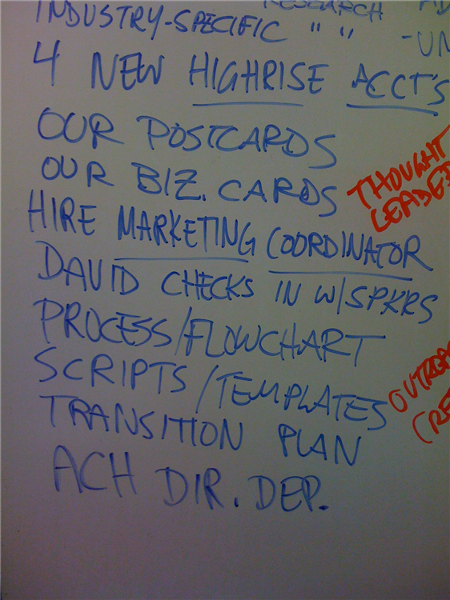 RESEARCH
INDUSTRY-SPECIFIC " "
4 NEW HIGHRISE ACCT'S
OUR POSTCARDS
OUR BIZ. CARDS
THOUGHT
HIRE MARKETING COORDINATOR
DAVID CHECKS IN W/SPKRS
PROCESS/FLOWCHART
SCRIPTS/TEMPLATES
TRANSITION PLAN
ACH DIR. DEP.